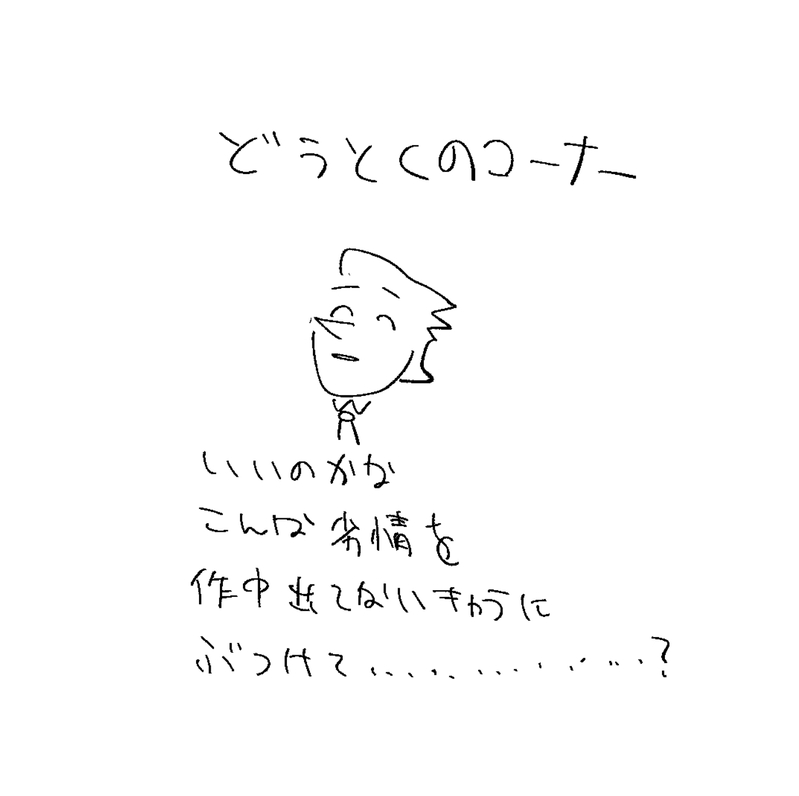 どうとくのコーナー
いいのかな
こんな劣情を
作中出てないキャラに
ぶつけて..............?